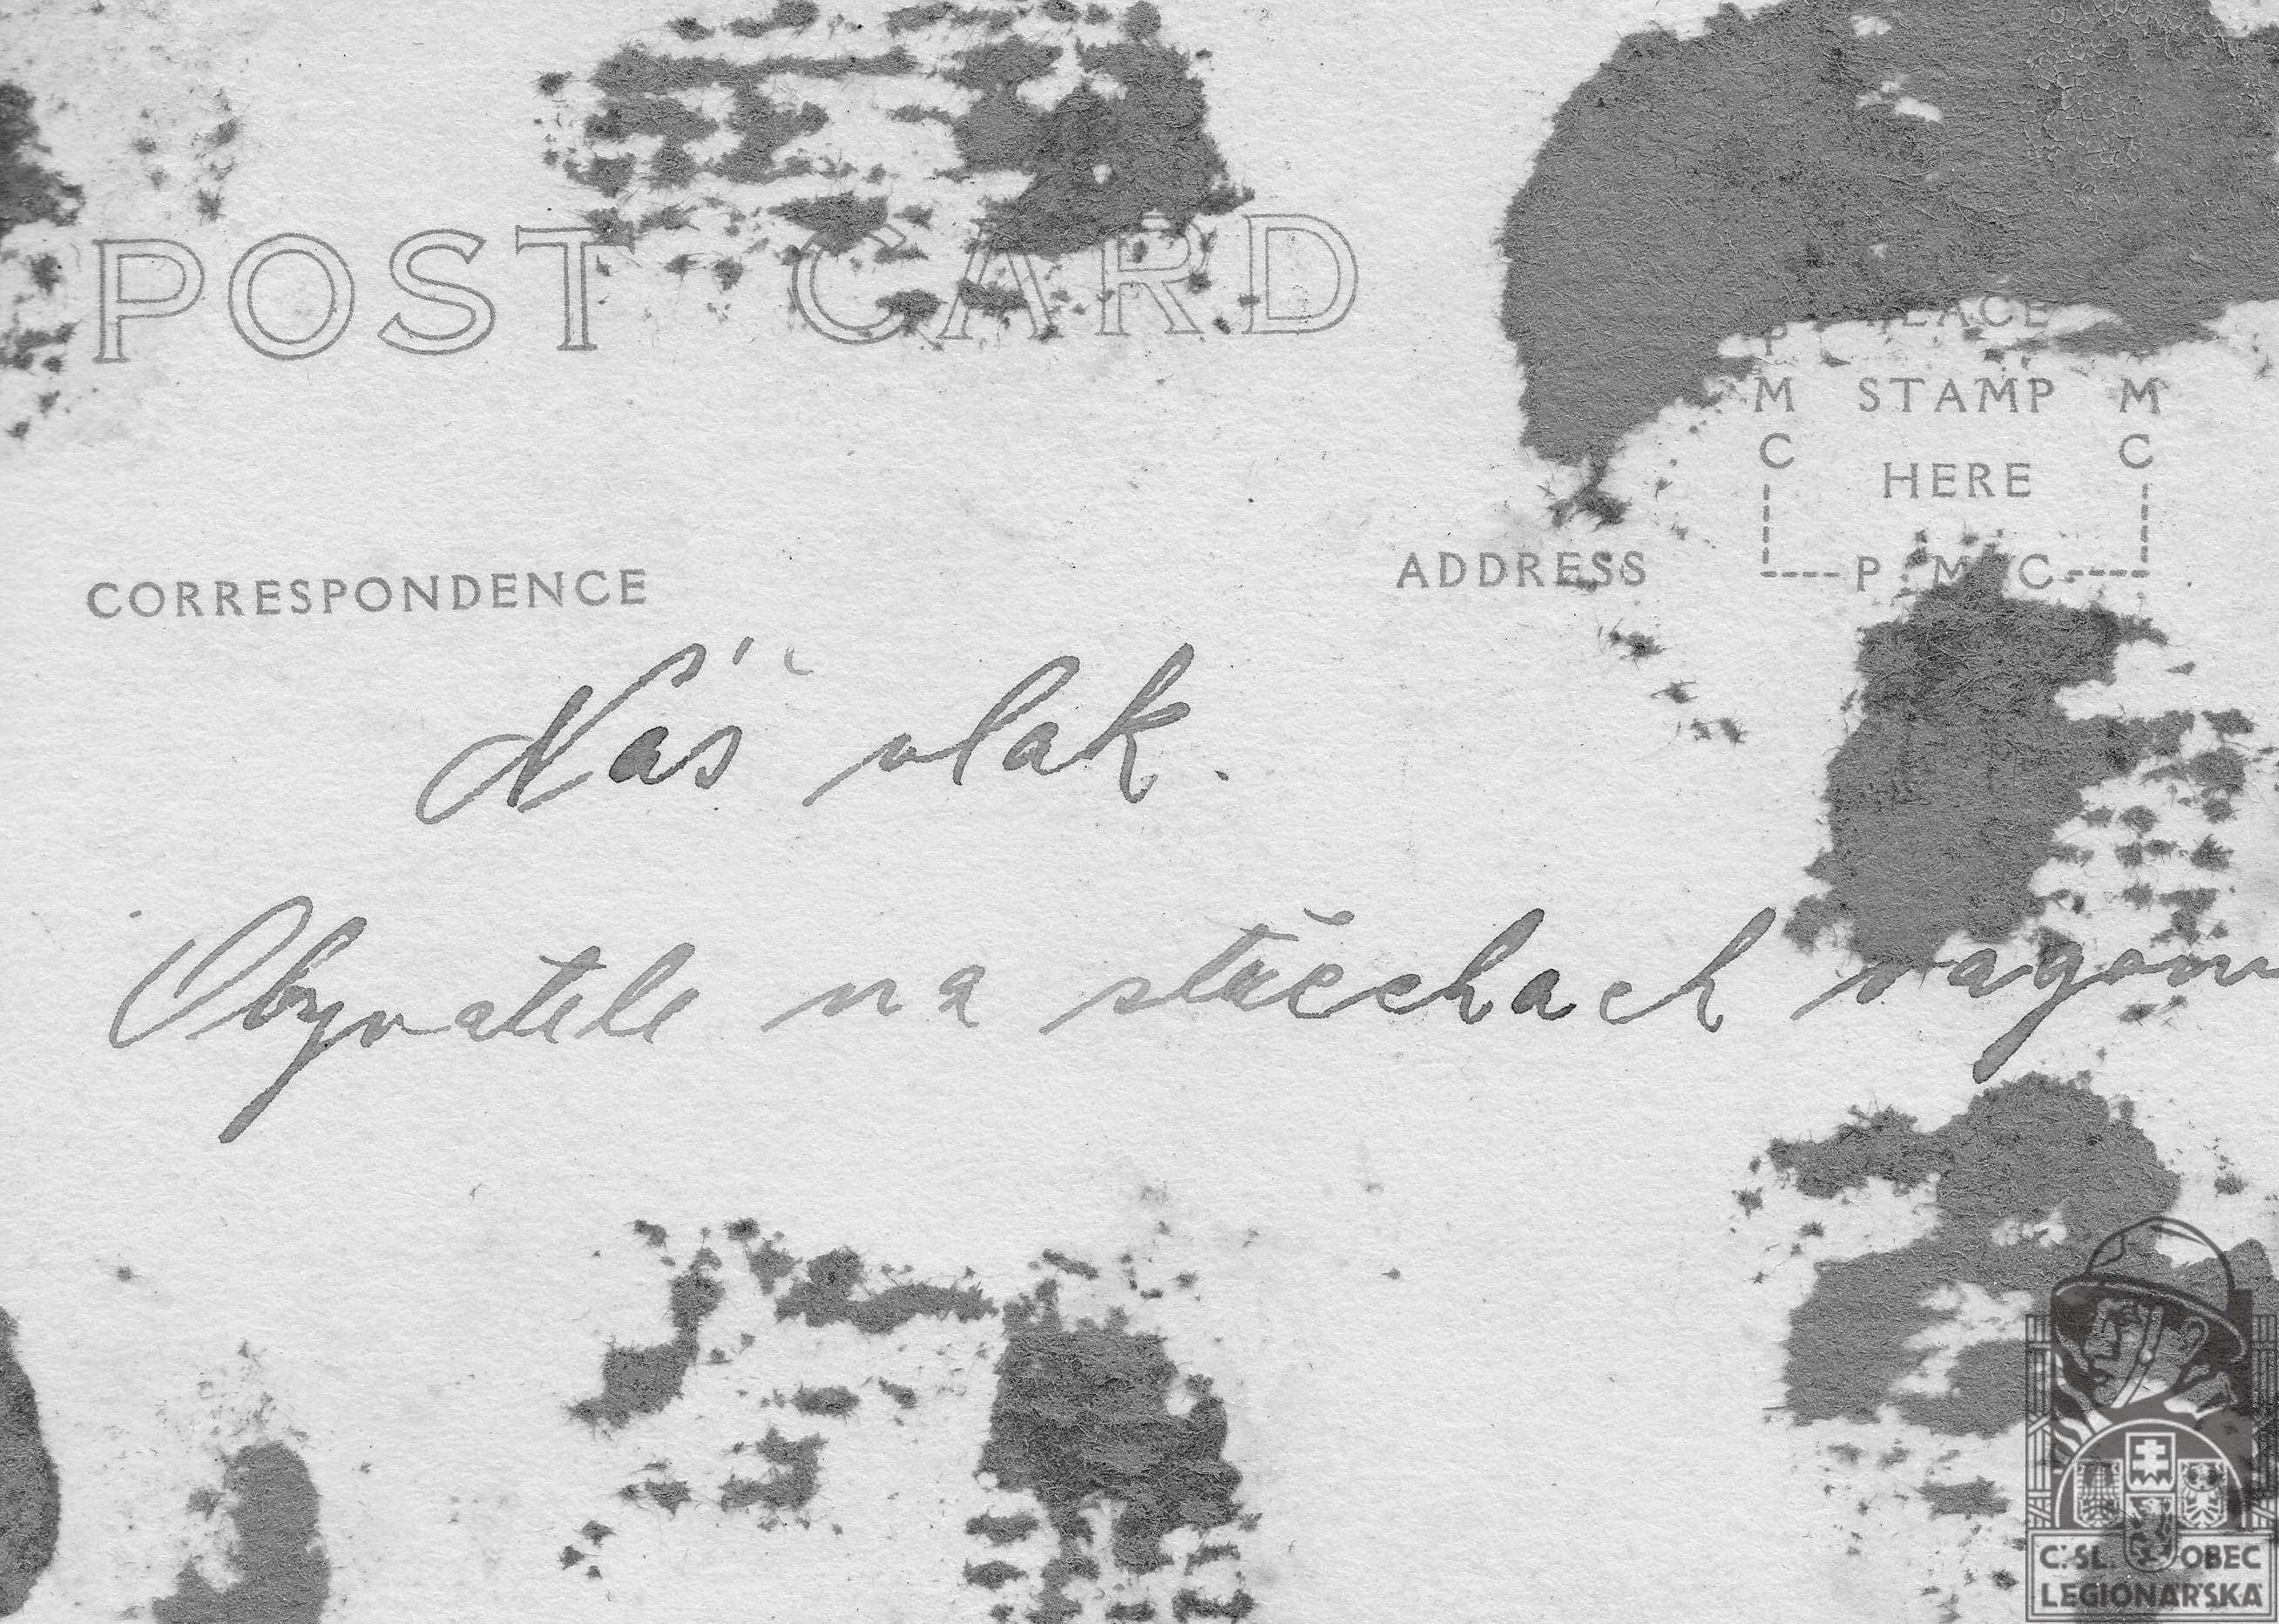 POST CARD
PLACE
STAMP
HERE
P M C
M C
M C
P M C
CORRESPONDENCE
ADDRESS
Náš vlak.
Obyvatelé na střechách
Č. SL. OBEC
LEGIONÁŘSKÁ